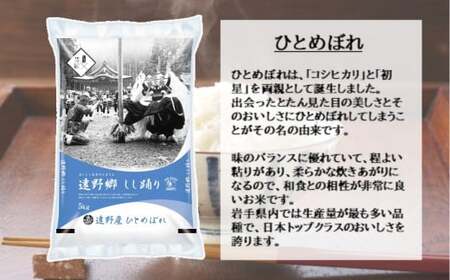 遠野郷 しし踊り
5kg
遠野産 ひとめぼれ
ひとめぼれ
ひとめぼれは、「コシヒカリ」と「初
星」を両親として誕生しました。
出会ったとたん見た目の美しさとそ
のおいしさにひとめぼれしてしまうこ
とがその名の由来です。
味のバランスに優れていて、程よい
粘りがあり、柔らかな炊きあがりに
なるので、和食との相性が非常に良
いお米です。
岩手県内では生産量が最も多い品
種で、日本トップクラスのおいしさを
誇ります。